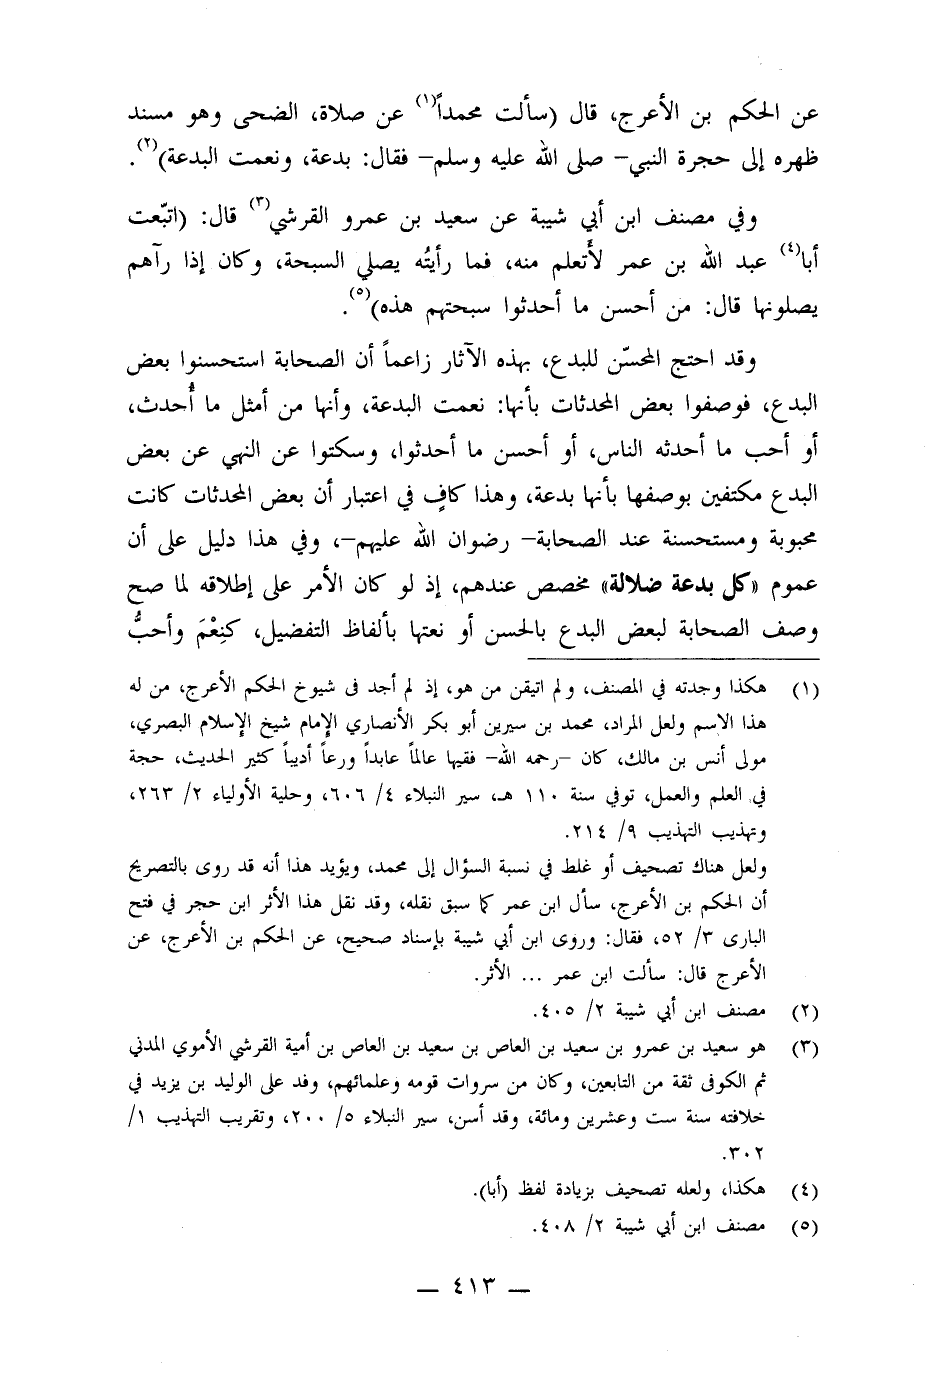 عن الحكم بن الأعرج، قال (سألت محمداً(١) عن صلاة، الضحى وهو مسند
ظهره إلى حجرة النبي– صلى الله عليه وسلم– فقال: بدعة، ونعمت البدعة)(٢).
وفي مصنف ابن أبي شيبة عن سعيد بن عمرو القرشي(٣) قال: (اتبّعت
أبا(٤) عبد الله بن عمر لأَتعلم منه، فما رأيتُه يصلي السبحة، وكان إذا رآهم
يصلونها قال: من أحسن ما أحدثوا سبحتهم هذه)(٥).
وقد احتج المحسّن للبدع، بهذه الآثار زاعماً أن الصحابة استحسنوا بعض
البدع، فوصفوا بعض المحدثات بأنها: نعمت البدعة، وأنها من أمثل ما أُحدث،
أو أحب ما أحدثه الناس، أو أحسن ما أحدثوا، وسكتوا عن النهي عن بعض
البدع مكتفين بوصفها بأنها بدعة، وهذا كافٍ في اعتبار أن بعض المحدثات كانت
محبوبة ومستحسنة عند الصحابة– رضوان الله عليهم–، وفي هذا دليل على أن
عموم «كل بدعة ضلالة» مخصص عندهم، إذ لو كان الأمر على إطلاقه لما صح
وصف الصحابة لبعض البدع بالحسن أو نعتها بألفاظ التفضيل، كنِعْمَ وأحبُّ
(١) هكذا وجدته في المصنف، ولم اتيقن من هو، إذ لم أجد فى شيوخ الحكم الأعرج، من له
هذا الاسم ولعل المراد، محمد بن سيرين أبو بكر الأنصاري الإمام شيخ الإسلام البصري،
مولى أنس بن مالك، كان –رحمه الله– فقيها عالماً عابداً ورعاً أديباً كثير الحديث، حجة
في العلم والعمل، توفي سنة ١١٠ هـ، سير النبلاء ٤/ ٦٠٦، وحلية الأولياء ٢/ ٢٦٣،
وتهذيب التهذيب ٩/ ٢١٤.
ولعل هناك تصحيف أو غلط في نسبة السؤال إلى محمد، ويؤيد هذا أنه قد روى بالتصريح
أن الحكم بن الأعرج، سأل ابن عمر كما سبق نقله، وقد نقل هذا الأثر ابن حجر في فتح
البارى ٣/ ٥٢، فقال: وروى ابن أبي شيبة بإسناد صحيح، عن الحكم بن الأعرج، عن
الأعرج قال: سألت ابن عمر ... الأثر.
(٢) مصنف ابن أبي شيبة ٢/ ٤٠٥.
(٣) هو سعيد بن عمرو بن سعيد بن العاص بن سعيد بن العاص بن أمية القرشي الأموي المدني
ثم الكوفى ثقة من التابعين، وكان من سروات قومه وعلمائهم، وفد على الوليد بن يزيد في
خلافته سنة ست وعشرين ومائة، وقد أسن، سير النبلاء ٥/ ٢٠٠، وتقريب التهذيب ١/
٣٠٢.
(٤) هكذا، ولعله تصحيف بزيادة لفظ (أبا).
(٥) مصنف ابن أبي شيبة ٢/ ٤٠٨.
— ٤١٣ —